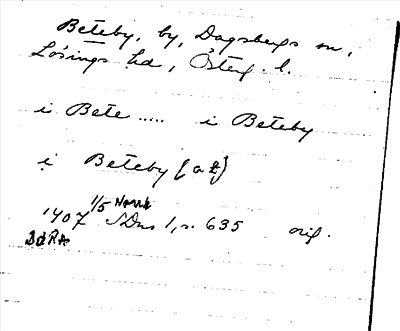 Beteby, by, Dagsbergs sn,
Lösings hd, Österg. l.
i Bete ..... i Beteby
i Beteby {at}
1407 1/5 Norrk SDns 1, s. 635 orig.
SdRA